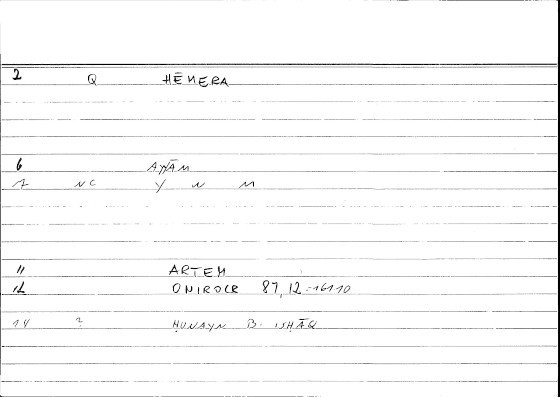 2 Q HĒMERA
6 AYYĀM
7 NC Y N M
11 ARTEM
12 ONIROCR 87, 12 = 16110
14 ? ḤUNAYN B. ISḤĀQ